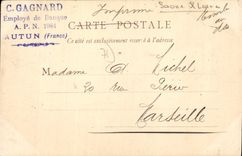 C. GAGNARD
Employé de Banque
A. P. N. 1961
AUTUN (France)
Imprimé
Saone & Loire
CARTE POSTALE
Ce côté est exclusivement réservé à l'adresse.
Madame D Michel
20 rue
Marseille